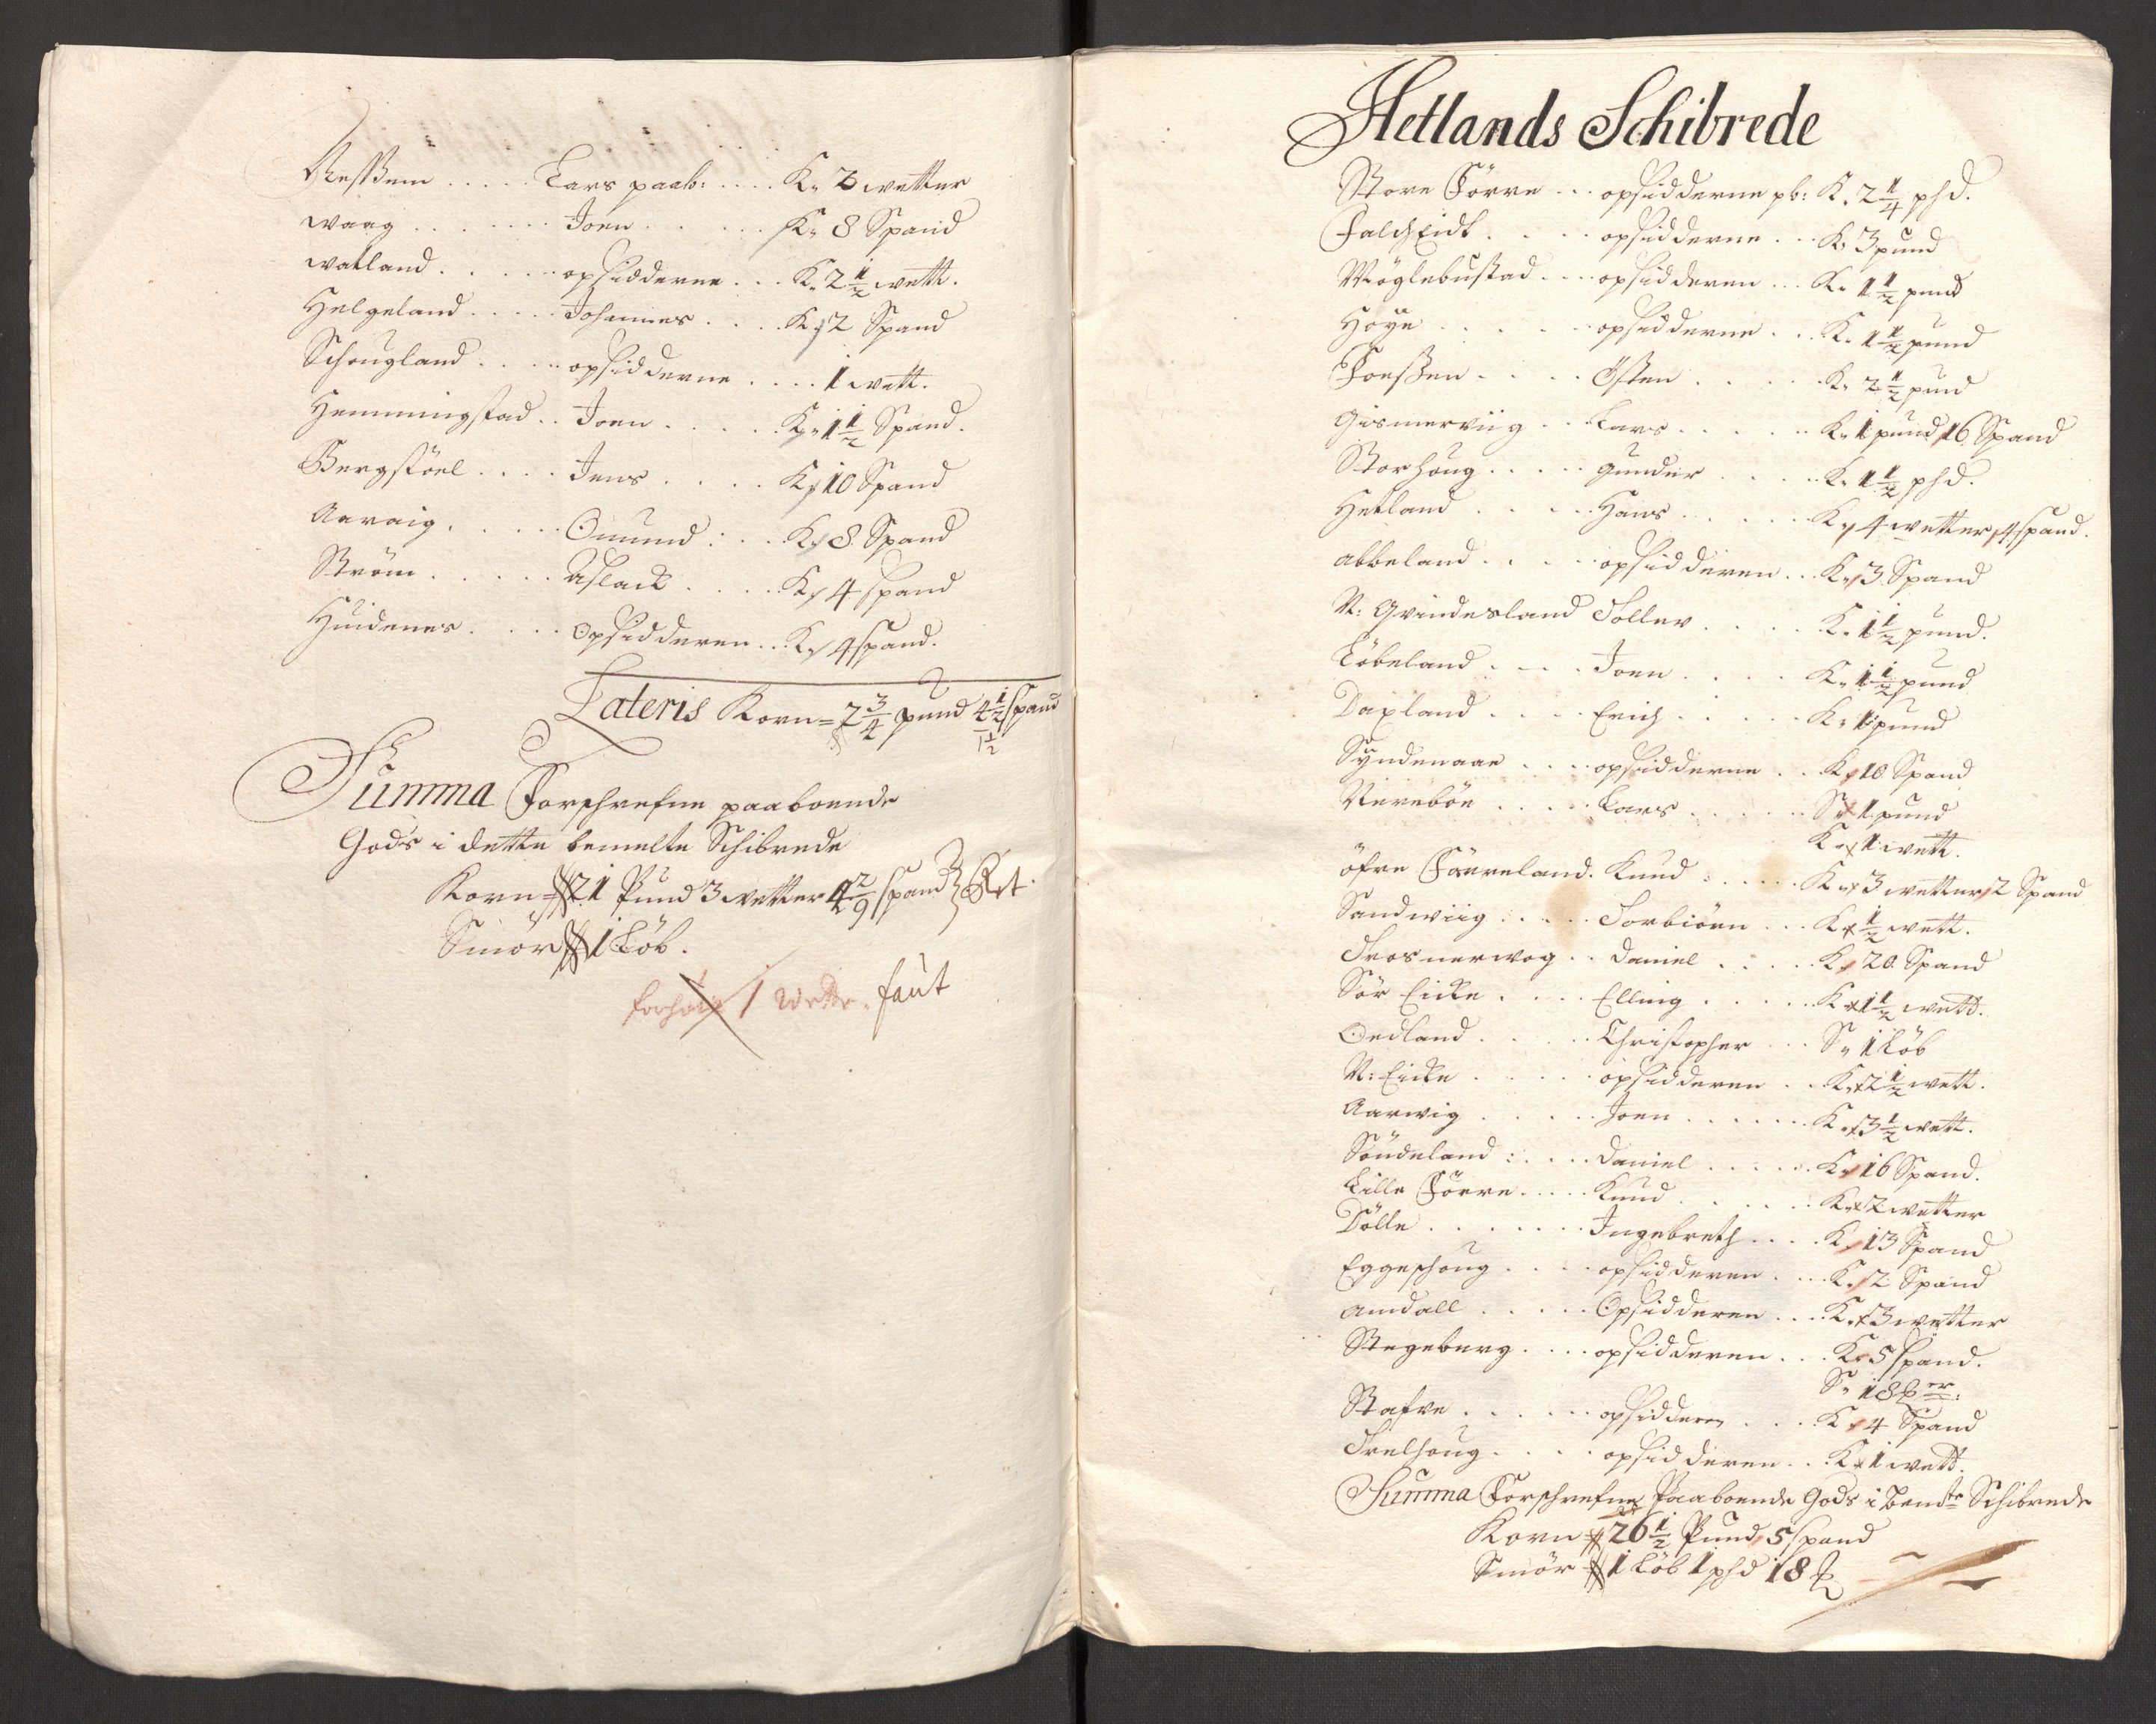 Lars paab: . . . . K. 2 wetter
waag . . . . . . . Joen . . . . . . K. 8 Spand
watland . . . . . opsidderne . . . K. 2 1/2 wett.
Helgeland . . . . . Johannes . . . . K. 2 Spand
Schougland . . . . opsidderne . . . . 1 wett.
Hemmingstad . . Joen . . . . . K. 1 1/2 Spand.
Bergstöel . . . . Jens . . . . K. 10 Spand
Aaraig . . . . . Omund : . . K. 8 Spand
Ström . . . . . Aslack . . . . K. 4 spand
Huidenes . . . . Opsidderen . . K. 4 spand.
Lateris Korn = 2 3/4 pund 4 1/2 spand
1 1/2
Summa Forschrefne paaboende
Gods i dette bemelte Schibrede
Korn = 21 Pund 3 wetter 4 2/9 spand
Smör 1 Löb.
1 Wette. faut
Hetlands Schibrede
Store Förre . . . opsidderne pb: K. 2 1/4 phd.
Falcheidt . . . . opsidderne . . . K. 3 pund
Möglebustad . . . opsidderen . . . K. 1 1/2 pund
Höye . . . . . . opsidderne . . K. 1 1/2 pund
Foessen . . . . Östen . . . . . K. 2 1/2 pund
Gismerviig . . Lars . . . . . . K. 1 pund 16 Spand
Storhoug . . . . . Gunder . . . . K. 1 1/2 phd.
Hetland . . . . . Hans . . . . . K. 4 wetter 4 spand.
abbeland . . . . . opsidderen . . K. 3 Spand
N: Qvindesland Tollev . . . . K. 1 1/2 pund.
Löbeland . . . . Joen . . . . . K. 1 1/2 pund
Dapland . . . . Erich . . . . . K. 1 pund
Syndenaae . . . . opsidderne . . K. 10 Spand
Virebön . . . . . Lars . . . . . S. 1 pund
K. 1 wett.
öfre Faareland. Knud : . . . . K. 3 wetter 2 Spand
Sandwiig . . . . Torbiörn . . . K. 1/2 wett.
Trosnerwog . . Daniel . . . . K. 20 Spand
Sör Eicke . . . . Elling . . . . . K. 1 1/2 wett.
Oedland . . . . . Christopher . . . S. 1 Löb
N: Eicke . . . . . opsidderen . . K. 2 1/2 wett.
Aarwig . . . . . Joen . . . . . . K. 3 1/2 wett.
Söndeland : . . . . Daniel . . . . . K. 16 Spand.
Lille Förre . . . . . Knud . . . . . . K. 2 wetter
Dölle . . . . . . . Ingebreth . . . . K. 13 Spand
Eggeshoug . . . . opsidderen . . . K. 2 Spand
amdall . . . . . Opsidderen . . . K. 3 wetter
Stegeberg . . . . opsidderen . . . K. 5 spand.
S. 18
Stafre . . . . . . opsidderen . . . K. 4 Spand
Trelhoug . . . . opsidderen . . K. 1 wett.
Summa Forschrefne Paaboende Gods i bemte Schibrede
Korn 26 1/2 Pund, 5 spand
Smör 1 Löb 1 phd 18